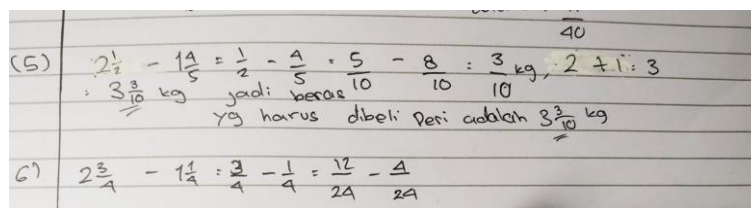 40
(5) 2 1/2 - 1 4/5 = 1/2 - 4/5 = 5/10 - 8/10 : 3/10 kg, 2 + 1 : 3
: 3 3/10 kg jadi beras
yg harus dibeli Peri adalah 3 3/10 kg
6) 2 3/4 - 1 1/4 : 3/4 - 1/4 = 12/24 - 4/24